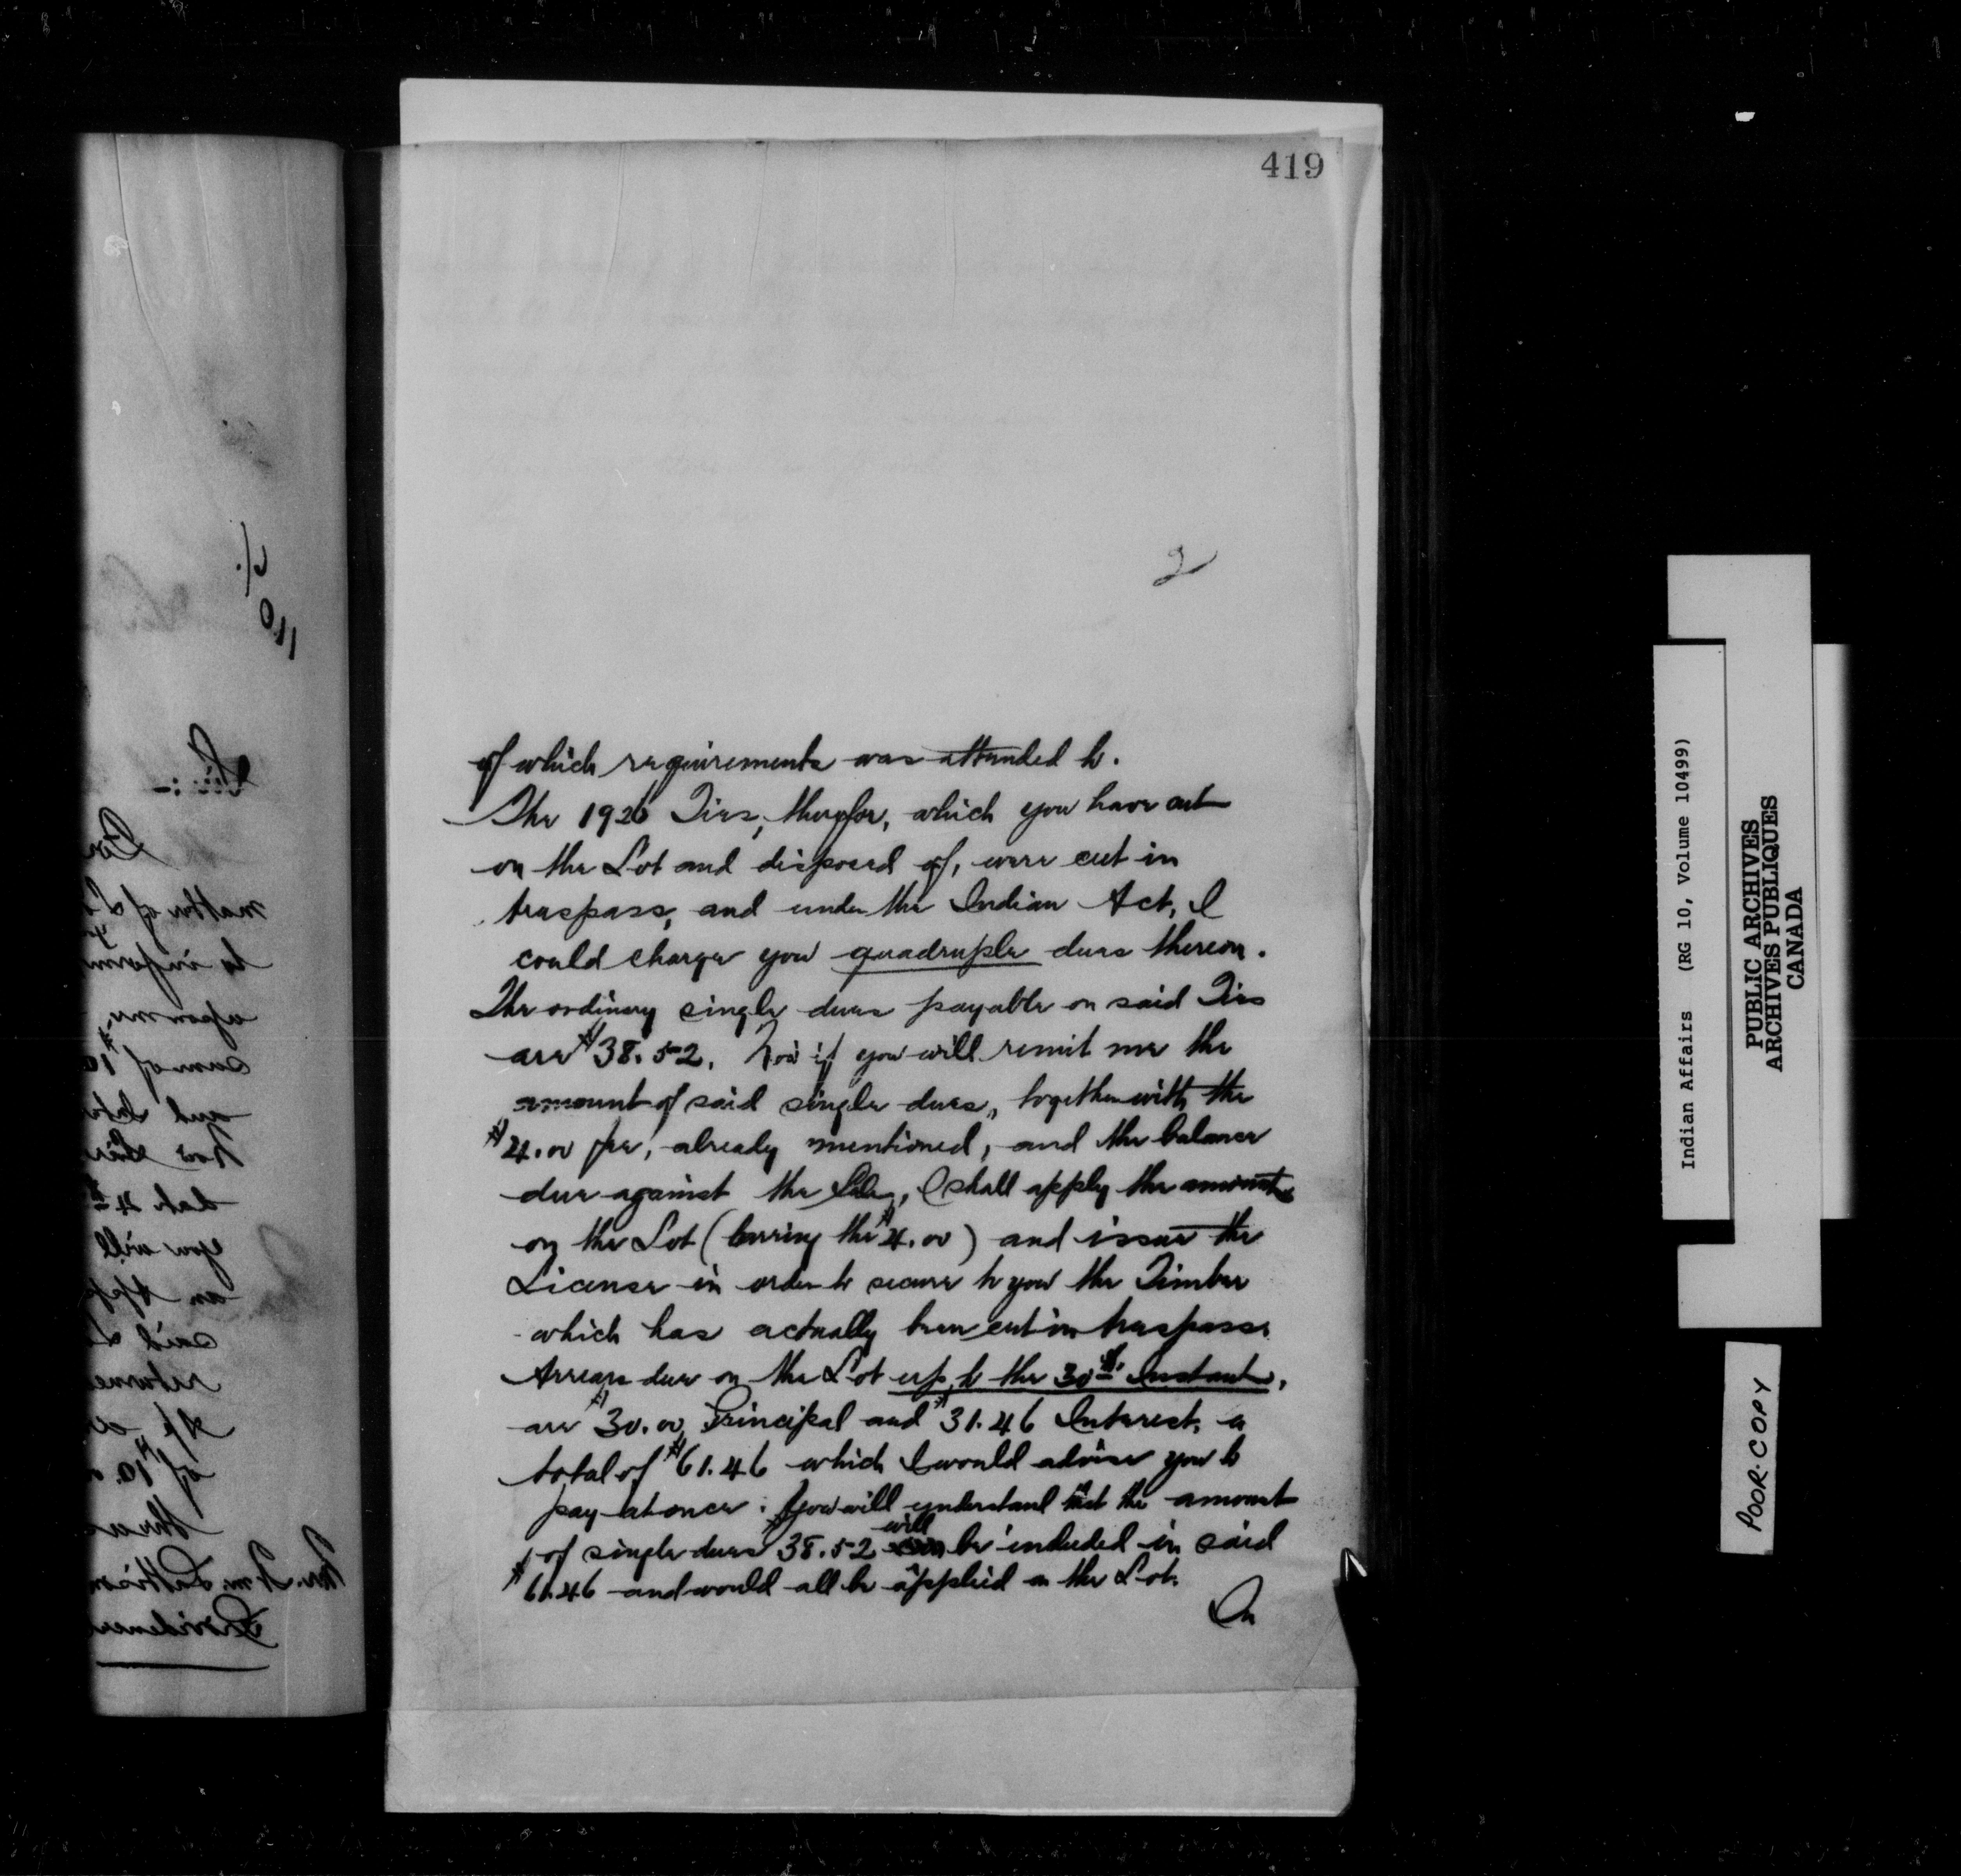 419
2
of which requirements was attended to.
The 1926 Ties, therefor, which you have cut
on the Lot and disposed of, were cut in
trespass, and under the Indian Act, I
could charge you quadruple dues thereon.
The ordinary single dues payable on said Ties
are $38.52. Now if you will remit me the
amount of said single dues, together with the
$4.00 fee, already mentioned, and the balance
due against the Sale, I shall apply the amounts
on the Lot (barring the $4.00) and issue the
License in order to secure to you the Timber
which has actually been cut in trespass.
Arrears due on the Lot up to the 30th Instant,
are $30.00 Principal and $31.46 Interest, a
total of $61.46 which I would advise you to
pay at once. You will understand that the amount
of single dues $38.52 will be included in said
$61.46 and would all be applied on the Lot.
On
Indian Affairs (RG 10, Volume 10499)
PUBLIC ARCHIVES
ARCHIVES PUBLIQUES
CANADA
POOR COPY